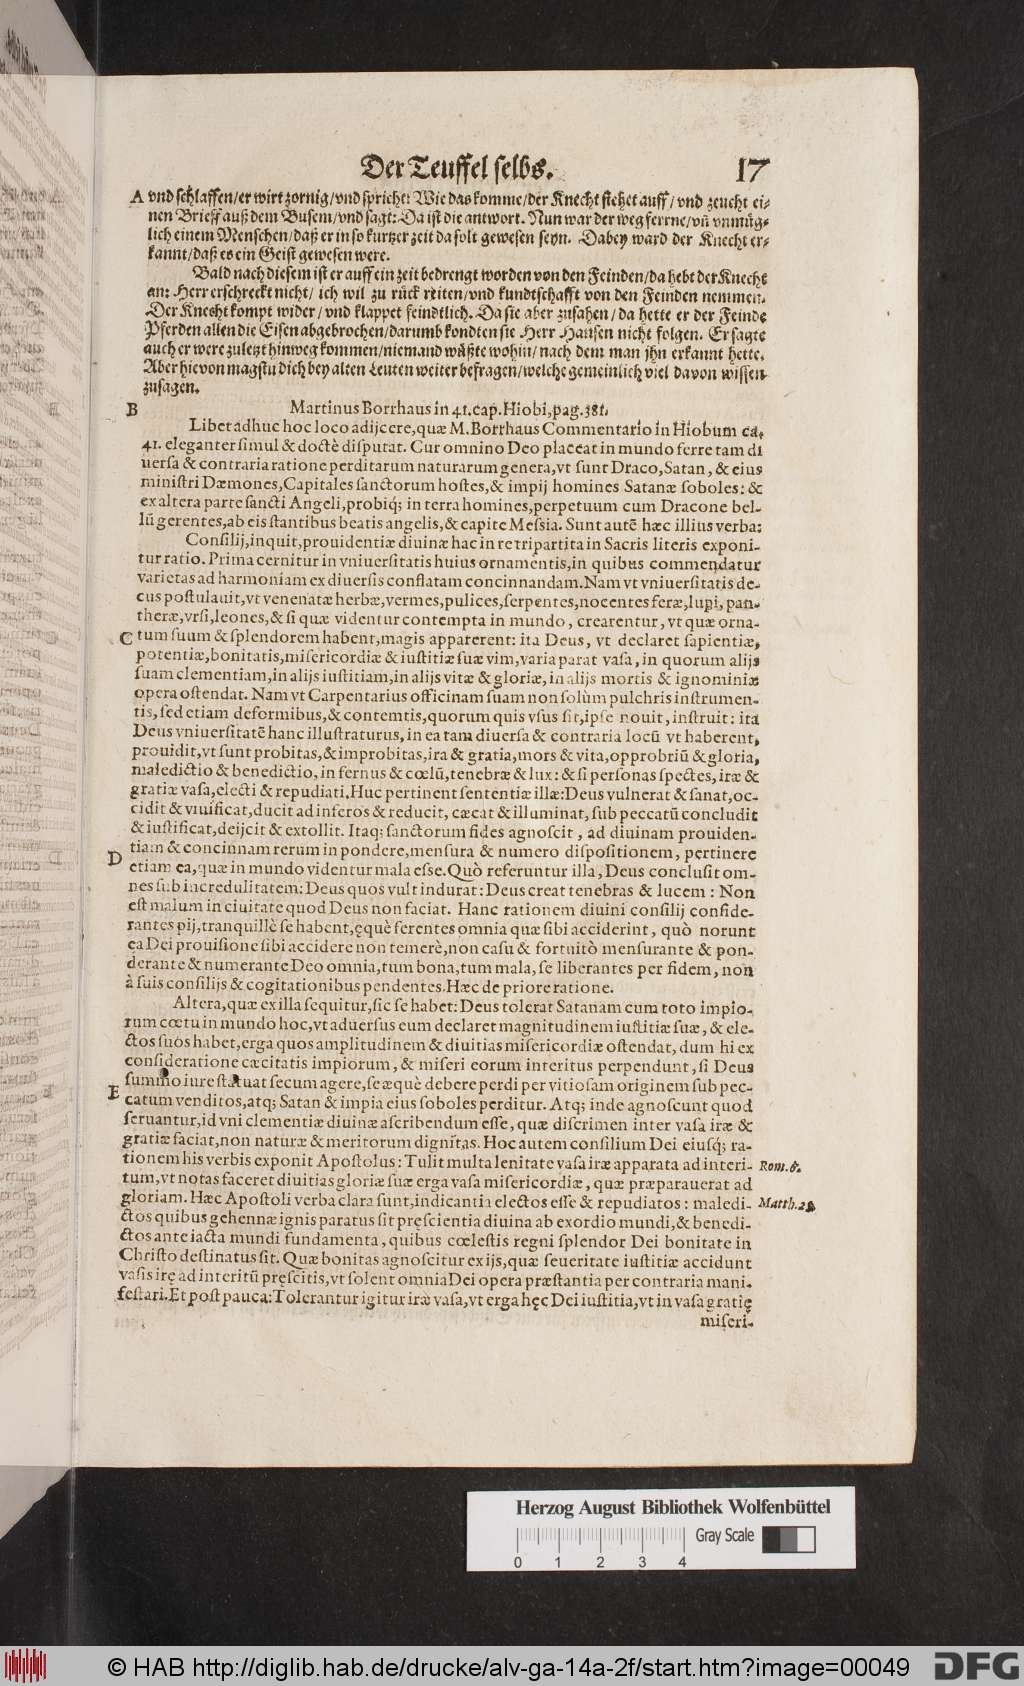 Der Teuffel selbs. 17
A vnd schlaffen/er wirt zornig/vnd spricht: Wie das komme/der Knecht stehet auff/ vnd zeucht ei-
nen Brieff auß dem Busem/vnd sagt: Da ist die antwort. Nun war der weg ferrne/vñ vnmüg-
lich einem Menschen/daß er in so kurtzer zeit da solt gewesen seyn. Dabey ward der Knecht er-
kannt/daß es ein Geist gewesen were.
Bald nach diesem ist er auff ein zeit bedrengt worden von den Feinden/da hebt der Knecht
an: Herr erschreckt nicht/ ich wil zu rück reiten/vnd kundtschafft von den Feinden nemmen.
Der Knecht kompt wider/ vnd klappet feindtlich. Da sie aber zusahen/da hette er der Feinde
Pferden allen die Eisen abgebrochen/darumb kondten sie Herr Hansen nicht folgen. Er sagte
auch er were zuletzt hinweg kommen/niemand wüßte wohin/ nach dem man jhn erkannt hette.
Aber hievon magstu dich bey alten Leuten weiter befragen/welche gemeinlich viel davon wissen
zusagen.
B Martinus Borrhaus in 41. cap. Hiobi, pag. 381.
Libet adhuc hoc loco adijcere, quæ M. Borrhaus Commentario in Hiobum ca.
41. eleganter simul & doctè disputat. Cur omnino Deo placeat in mundo ferre tam di
uersa & contraria ratione perditarum naturarum genera, vt sunt Draco, Satan, & eius
ministri Dæmones, Capitales sanctorum hostes, & impij homines Satanæ soboles: &
ex altera parte sancti Angeli, probiq́; in terra homines, perpetuum cum Dracone bel-
lũ gerentes, ab eis stantibus beatis angelis, & capite Messia. Sunt autẽ hæc illius verba:
Consilij, inquit, prouidentiæ diuinæ hac in re tripartita in Sacris literis exponi-
tur ratio. Prima cernitur in vniuersitatis huius ornamentis, in quibus commendatur
varietas ad harmoniam ex diuersis conflatam concinnandam. Nam vt vniuersitatis de-
cus postulauit, vt venenatæ herbæ, vermes, pulices, serpentes, nocentes feræ, lupi, pan-
theræ, vrsi, leones, & si quæ videntur contempta in mundo, crearentur, vt quæ orna-
C tum suum & splendorem habent, magis apparerent: ita Deus, vt declaret sapientiæ,
potentiæ, bonitatis, misericordiæ & iustitiæ suæ vim, varia parat vasa, in quorum alijs
suam clementiam, in alijs iustitiam, in alijs vitæ & gloriæ, in alijs mortis & ignominiæ
opera ostendat. Nam vt Carpentarius officinam suam non solùm pulchris instrumen-
tis, sed etiam deformibus, & contemtis, quorum quis vsus sit, ipse nouit, instruit: ita
Deus vniuersitatẽ hanc illustraturus, in ea tam diuersa & contraria locũ vt haberent,
prouidit, vt sunt probitas, & improbitas, ira & gratia, mors & vita, opprobriũ & gloria,
maledictio & benedictio, infernus & cœlũ, tenebræ & lux: & si personas spectes, iræ &
gratiæ vasa, electi & repudiati, Huc pertinent sententiæ illæ: Deus vulnerat & sanat, oc-
cidit & viuificat, ducit ad inferos & reducit, cæcat & illuminat, sub peccatũ concludit
& iustificat, deijcit & extollit. Itaq; sanctorum fides agnoscit, ad diuinam prouiden-
D tiam & concinnam rerum in pondere, mensura & numero dispositionem, pertinere
etiam ea, quæ in mundo videntur mala esse. Quò referuntur illa, Deus conclusit om-
nes sub incredulitatem: Deus quos vult indurat: Deus creat tenebras & lucem: Non
est malum in ciuitate quod Deus non faciat. Hanc rationem diuini consilij conside-
rantes pij, tranquillè se habent, ęquè ferentes omnia quæ sibi acciderint, quò norunt
ea Dei prouisione sibi accidere non temerè, non casu & fortuitò mensurante & pon-
derante & numerante Deo omnia, tum bona, tum mala, se liberantes per fidem, non
à suis consilijs & cogitationibus pendentes. Hæc de priore ratione.
Altera, quæ ex illa sequitur, sic se habet: Deus tolerat Satanam cum toto impio-
rum cœtu in mundo hoc, vt aduersus eum declaret magnitudinem iustitiæ suæ, & ele-
ctos suos habet, erga quos amplitudinem & diuitias misericordiæ ostendat, dum hi ex
consideratione cæcitatis impiorum, & miseri eorum interitus perpendunt, si Deus
summo iure statuat secum agere, se æquè debere perdi per vitiosam originem sub pec-
E catum venditos, atq; Satan & impia eius soboles perditur. Atq; inde agnoscunt quod
seruantur, id vni clementiæ diuinæ ascribendum esse, quæ discrimen inter vasa iræ &
gratiæ faciat, non naturæ & meritorum dignitas. Hoc autem consilium Dei eiusq́; ra-
tionem his verbis exponit Apostolus: Tulit multa lenitate vasa iræ apparata ad interi- Rom. 6.
tum, vt notas faceret diuitias gloriæ suæ erga vasa misericordiæ, quæ præparauerat ad
gloriam. Hæc Apostoli verba clara sunt, indicantia electos esse & repudiatos: maledi- Matth. 25.
ctos quibus gehennæ ignis paratus sit pręscientia diuina ab exordio mundi, & benedi-
ctos ante iacta mundi fundamenta, quibus cœlestis regni splendor Dei bonitate in
Christo destinatus sit. Quæ bonitas agnoscitur ex ijs, quæ seueritate iustitiæ accidunt
vasis irę ad interitũ pręscitis, vt solent omnia Dei opera præstantia per contraria mani-
festari. Et post pauca: Tolerantur igitur iræ vasa, vt erga hęc Dei iustitia, vt in vasa gratię
miseri-
Herzog August Bibliothek Wolfenbüttel
Gray Scale
0 1 2 3 4
© HAB http://diglib.hab.de/drucke/alv-ga-14a-2f/start.htm?image=00049 DFG